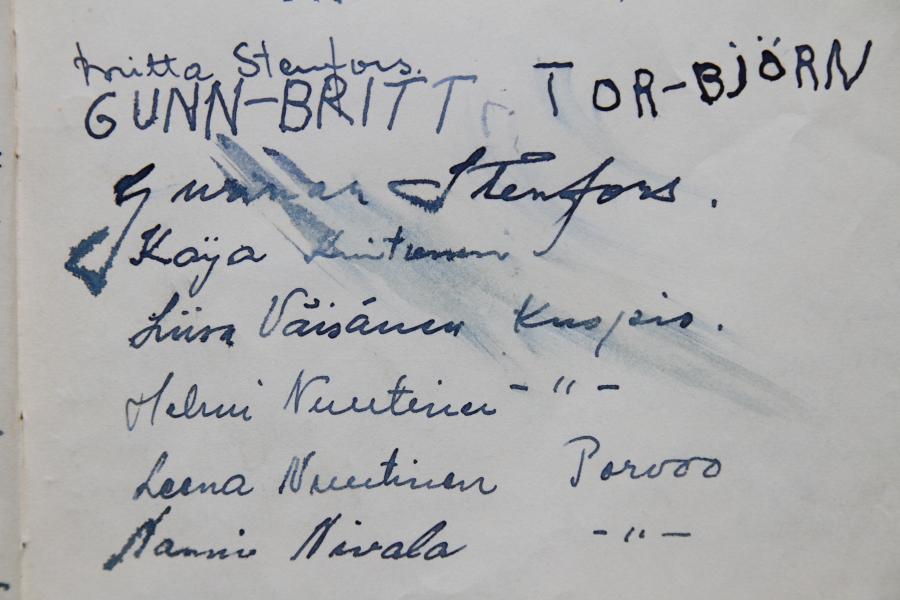 Britta Stenfors.
GUNN-BRITT TOR-BJÖRN
Gunnar Stenfors.
Kaija
Liisa Väisänen Kuopio.
Helmi Nuutinen -"-
Leena Nuutinen Porvoo
Nivala -"-